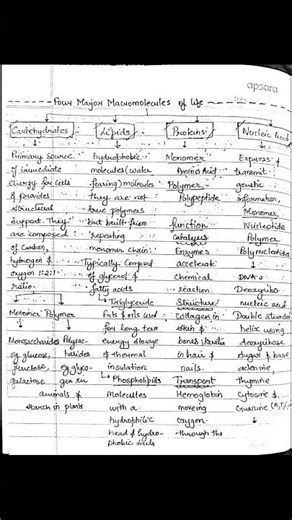 apsara
Four Major Macromolecules of life
Carbohydrates
Primary source
of immediate
energy for cells
& provides
structural
support. They
are composed
of carbon,
hydrogen &
oxygen 1:2:1
ratio
Monomer Polymer
Monosaccharides Polysac-
eg glucose, harides
fructose, eg glyco-
galactose gen in
animals &
starch in plants
Lipids
hydrophobic
molecules (water
fearing) molecules
they are not
true polymers
but built from
repeating
monomer chain.
Typically Compos
of glycerol &
fatty acids
Triglyceride
Fats & oils used
for long term
energy storage
& thermal
insulation
Phospholipids
Molecules
with a
hydrophilic
head & hydro-
phobic tails
Proteins
Monomer
Amino Acid
Polymer
Polypeptide
function
Catalysis
Enzymes
accelerate
chemical
reaction
Structure
collagen in
skin &
bones, keratin
in hair &
nails.
Transport
Hemoglobin
moving
oxygen
through the
Nucleic Acid
Express &
transmit
genetic
information,
Monomer
Nucleotide
Polymer
Polynucleotide
DNA
Deoxyribo
nucleic acid
Double stranded
helix using
deoxyribose
sugar & base
adenine,
thymine
cytosine &
Guanine